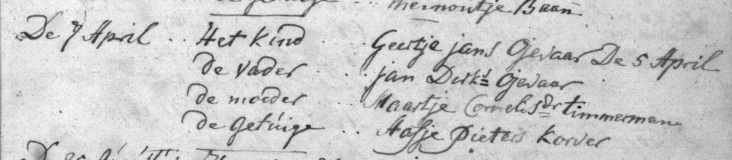 Meinoutje Baan
De 7 April .. Het Kind .. Geertje jans Gevaar De 5 April
de vader .. jan Dirks Gevaar
de moeder .. Maartje Cornelisdr timmerman
de getuige .. Aafje Pieters Korver